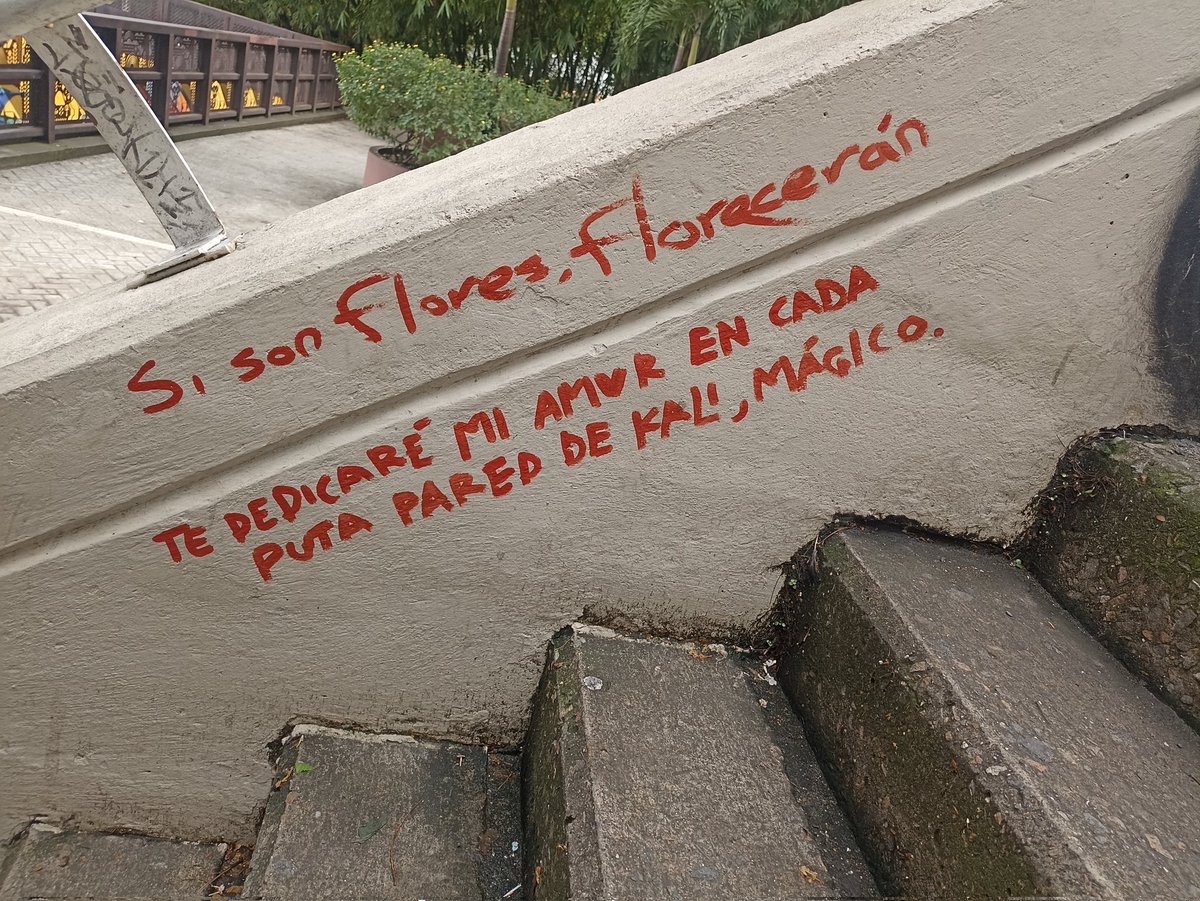 Si son flores, florecerán
TE DEDICARÉ MI AMOR EN CADA
PUTA PARED DE KALI, MÁGICO.